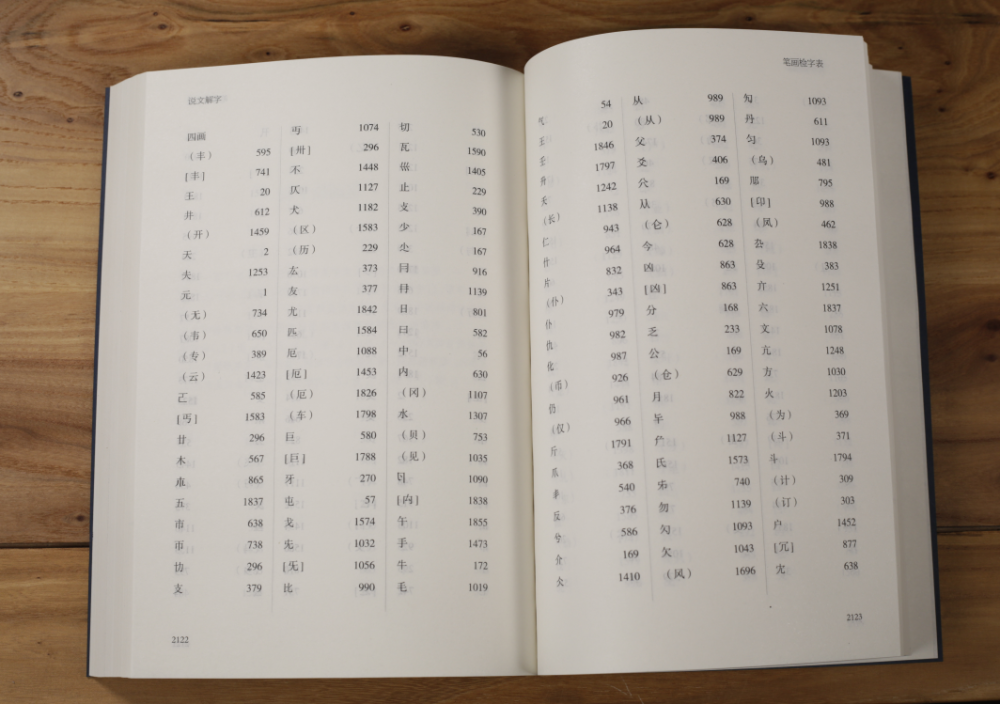 说文解字
四画
（丰） 595
[丰] 741
王 20
井 612
（开） 1459
天 2
夫 1253
元 1
（无） 734
（韦） 650
（专） 389
（云） 1423
585
[丐] 1583
甘 296
木 567
朮 865
五 1837
巿 638
帀 738
296
支 379
丏 1074
[卅] 296
不 1448
仄 1127
犬 1182
（区） 1583
（历） 229
厷 373
友 377
尤 1842
匹 1584
厄 1088
[厄] 1453
（厄） 1826
（东） 1798
巨 580
[巨] 1788
牙 270
屯 57
戈 1574
旡 1032
[旡] 1056
比 990
切 530
瓦 1590
1405
止 229
攴 390
少 167
尐 167
冃 916
冄 1139
日 801
曰 582
中 56
内 630
（冈） 1107
水 1307
（贝） 753
（见） 1035
1090
[内] 1838
午 1855
手 1473
牛 172
毛 1019
2122
笔画检字表
气 54
20
壬 1846
升 1797
夭 1242
（长） 1138
仁 943
什 964
片 832
（仆） 343
仆 979
仇 982
化 987
（币） 926
仍 961
（仅） 966
斤 1791
爪 368
540
反 376
兮 586
介 169
仌 1410
从 989
（从） 989
父 374
爻 406
169
630
（仑） 628
今 628
凶 863
[凶] 863
分 168
乏 233
公 169
（仓） 629
月 822
988
厃 1127
氏 1573
740
勿 1139
1093
欠 1043
（风） 1696
1093
丹 611
匀 1093
（乌） 481
795
[卬] 988
（凤） 462
1838
殳 383
亣 1251
六 1837
文 1078
亢 1248
方 1030
火 1203
（为） 369
（斗） 371
斗 1794
（计） 309
（订） 303
户 1452
[冗] 877
宂 638
2123